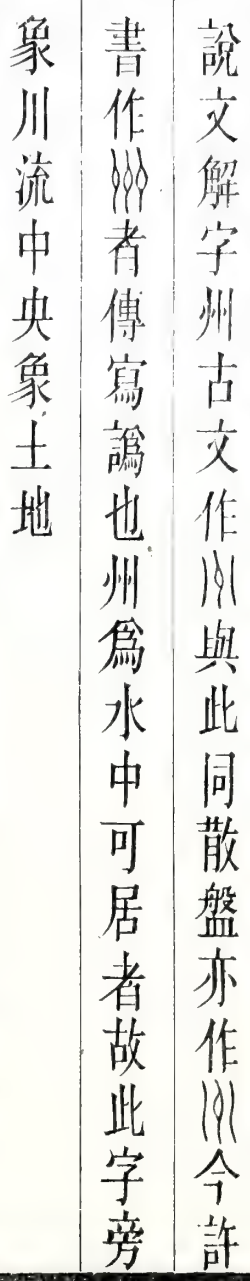 說文解字州古文作𠃕與此同散盤亦作𠃕今許
書作州者傳寫譌也州爲水中可居者故此字旁
象川流中央象土地